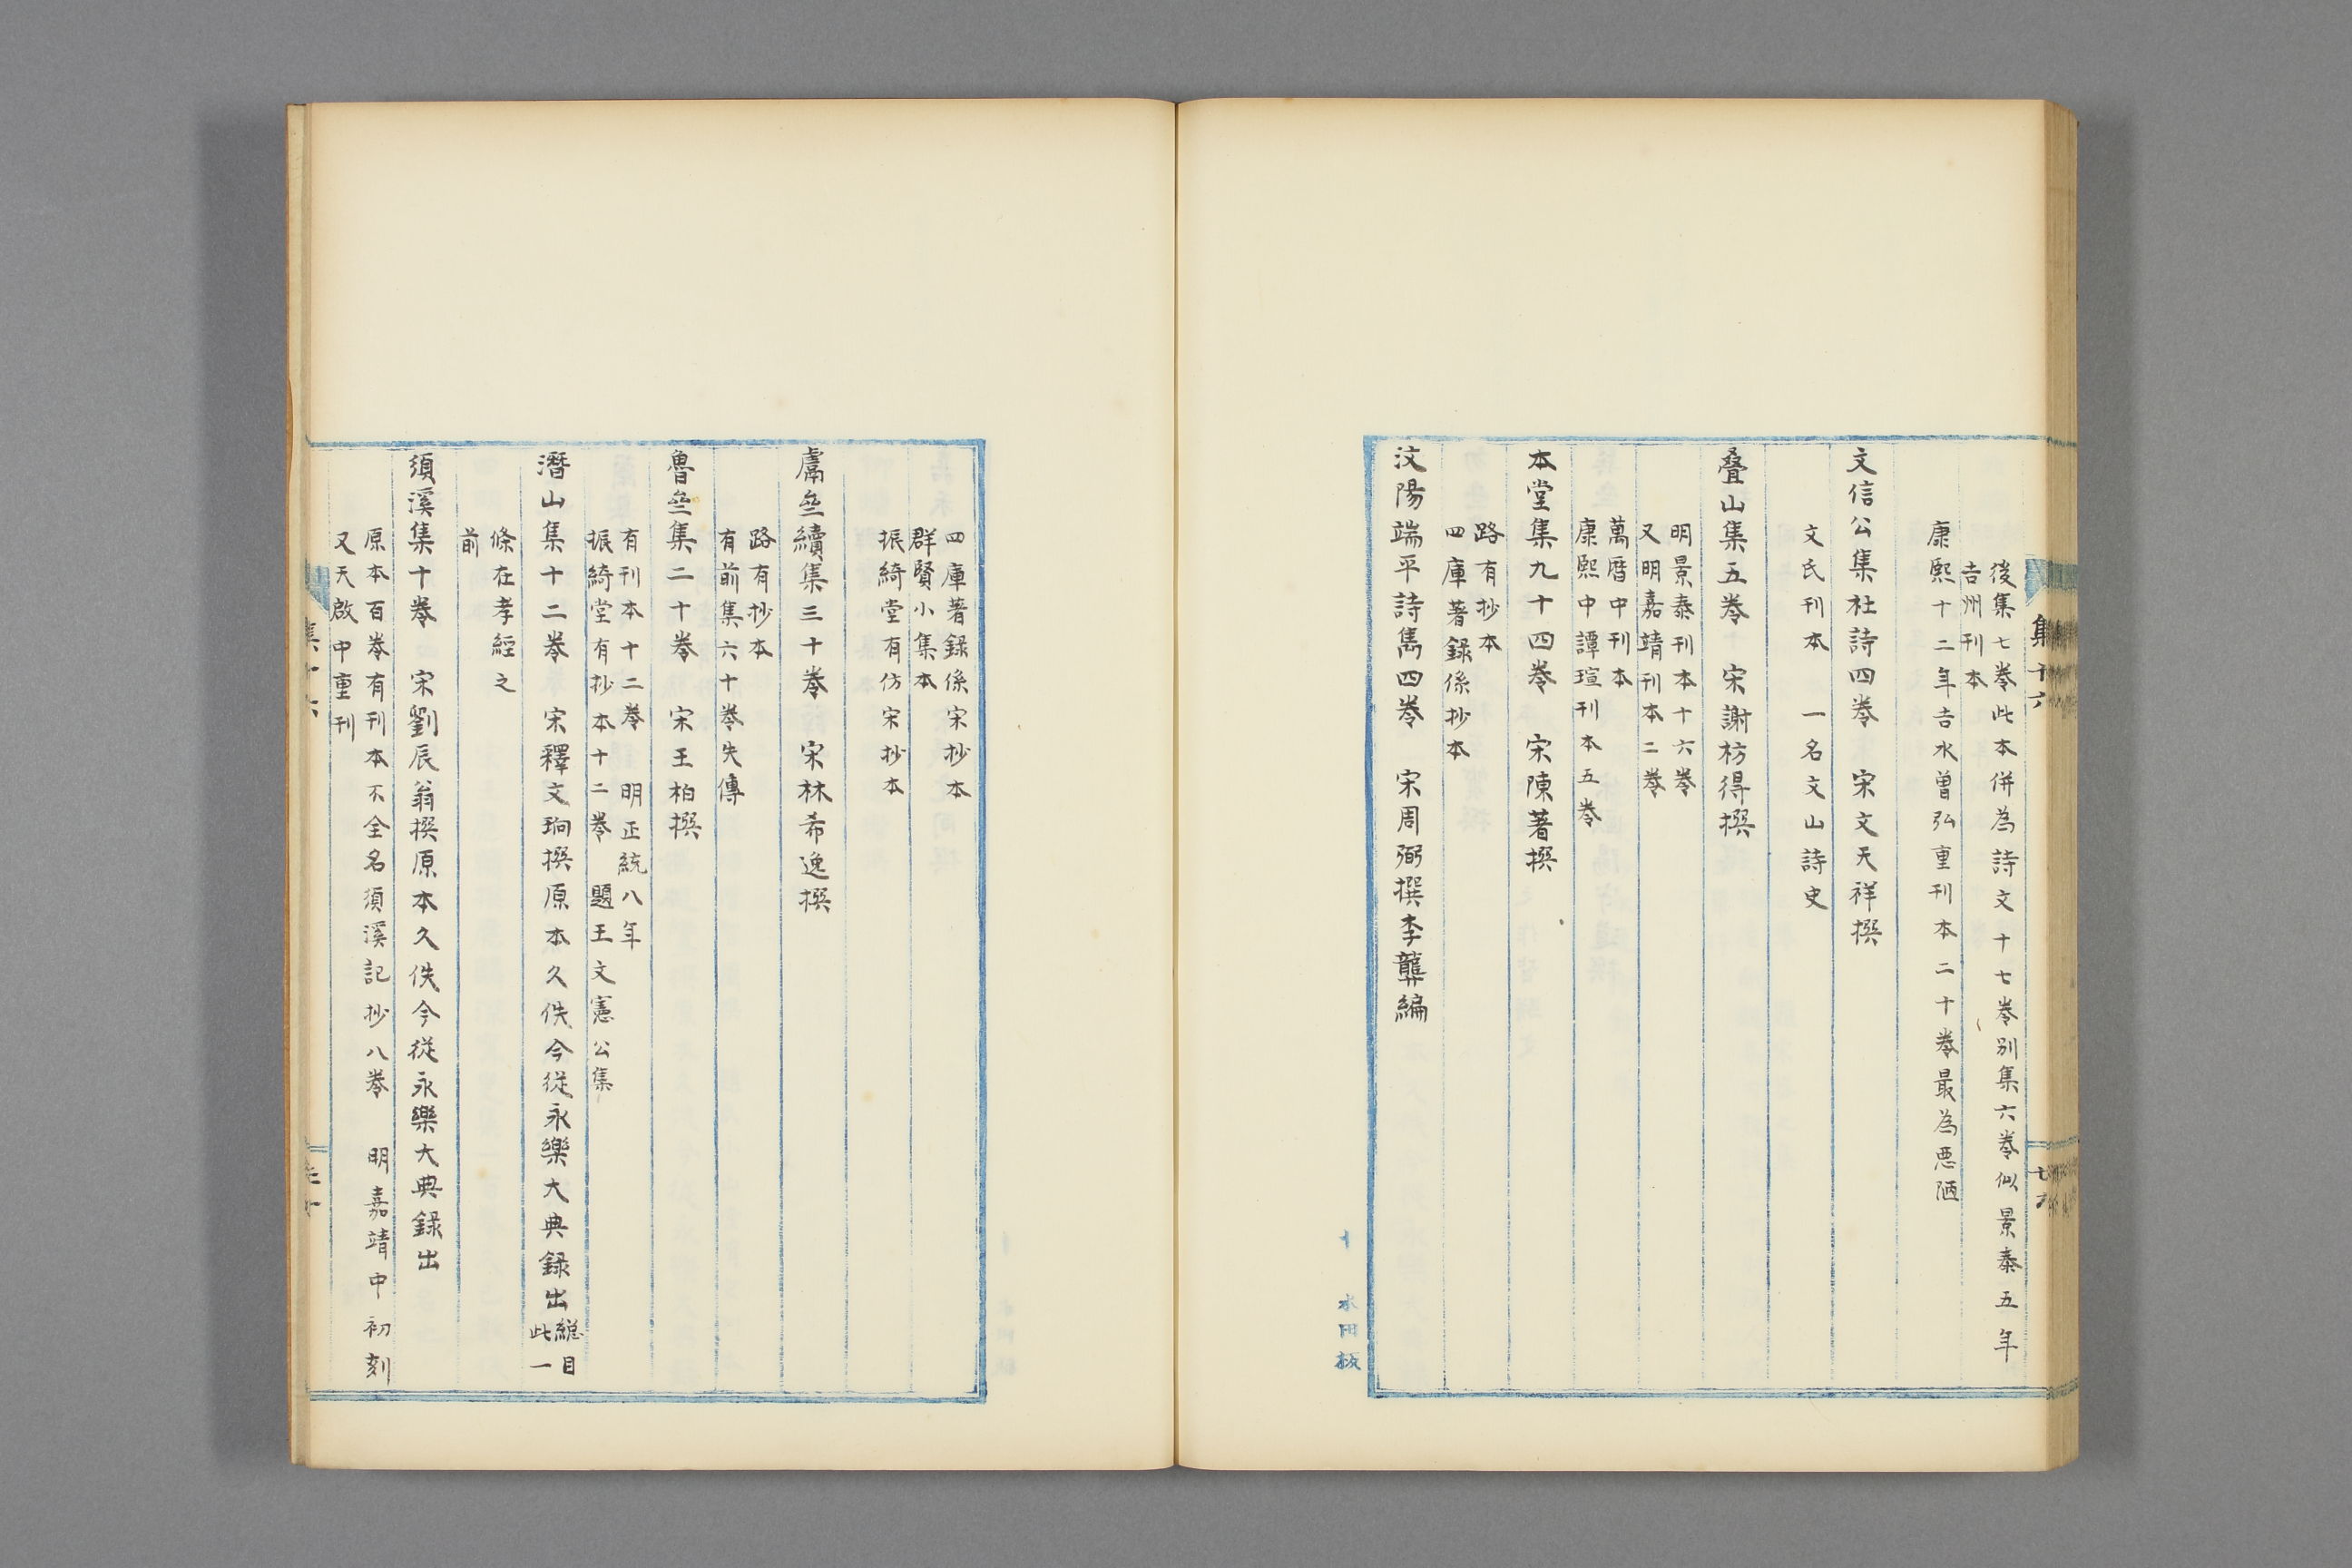 後集七巻此本併為詩文十七巻別集六巻似景泰五年
吉州刊本
康熙十二年吉水曽弘重刊本二十巻最為悪陋
文信公集杜詩四巻　宋文天祥撰
文氏刊本　一名文山詩史
叠山集五巻　宋謝枋得撰
明景泰刊本十六巻
又明嘉靖刊本二巻
萬暦中刊本
康熙中譚瑄刊本五巻
本堂集九十四巻　宋陳著撰
路有抄本
四庫著録係抄本
汶陽端平詩雋四巻　宋周弼撰李龏編
集十六
水田板
四庫著録係宋抄本
群賢小集本
振綺堂有仿宋抄本
鬳𠫤續集三十巻　宋林希逸撰
路有抄本
有前集六十巻失傳
魯𠫤集二十巻　宋王柏撰
有刊本十二巻　明正統八年
振綺堂有抄本十二巻　題王文憲公集
潛山集十二巻　宋釋文珦撰原本久佚今從永樂大典録出
総目
此一
條在孝經之
前
須溪集十巻　宋劉辰翁撰原本久佚今從永樂大典録出
原本百巻有刊本不全名須溪記抄八巻　明嘉靖中初刻
又天啟中重刊